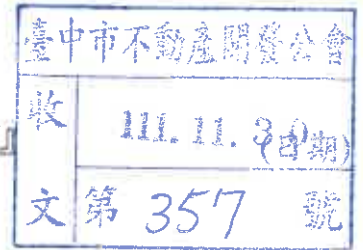 臺中市不動產開發公會
收 111. 11. 30 (日期)
文 第 357 號